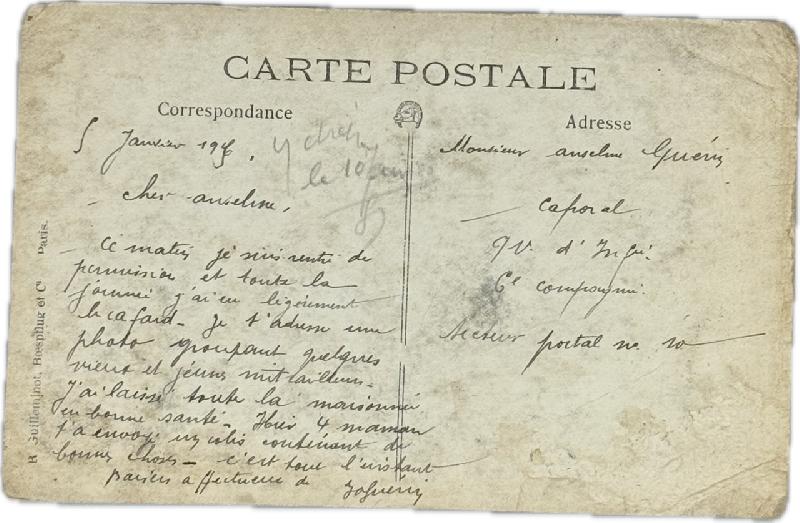 CARTE POSTALE
Correspondance
5 Janvier 191
le 10
Cher anselme,
Ce matin je suis rentré de
permission et toute la
journée j'ai eu légèrement
le cafard - Je t'adresse une
photo groupant quelques
vieux et jeunes mitrailleurs -
J'ai laissé toute la maisonnée
en bonne santé - Hier 4 maman
t'a envoyé un colis contenant de
bonnes choses - c'est tout l'instant
Baisers affectueux de
Adresse
Monsieur anselme Guérin
Caporal
9 d'Inf
6e compagnie
Secteur postal no 10
R Guilleminot, Boespflug et Cie Paris.